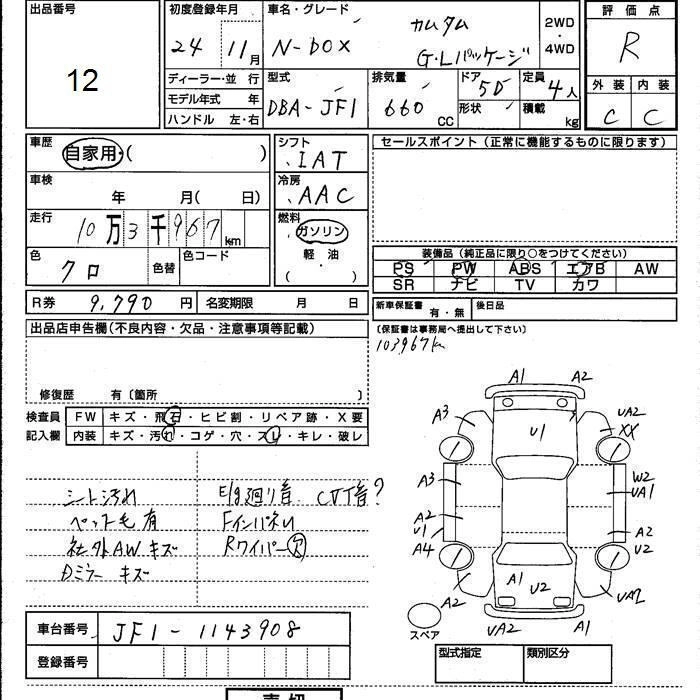 出品番号
12
初度登録年月
24 11月
車名・グレード
N-BOX カスタム
G・Lパッケージ
2WD
・
4WD
評価点
R
外装 内装
C C
ディーラー・並 行
モデル年式 年
ハンドル 左・右
型式
DBA-JF1
排気量
660 CC
ドア 5D
形状
定員 4人
積載 kg
車歴
自家用・( )
車検
年 月( 日)
走行
10万3千967km
色
クロ
色替
色コード
R券 9,790 円
名変期限 月 日
シフト
IAT
冷房
AAC
燃料
ガソリン
軽・油
( )
セールスポイント(正常に機能するものに限ります)
装備品(純正品に限り○をつけてください)
PS PW ABS エアB AW
SR ナビ TV カワ
新車保証書 有・無
後日品
(保証書は事務局へ提出して下さい)
103967km
出品店申告欄(不良内容・欠品・注意事項等記載)
修復歴 有〔箇所 〕
検査員
記入欄
FW キズ・飛石・ヒビ割・リペア跡・X要
内装 キズ・汚れ・コゲ・穴・スレ・キレ・破レ
シート汚れ
ペット毛有
社外AWキズ
Dミラーキズ
E/g廻り音 CVT音?
Fインパネル
Rワイパー欠
A1 A2
A3 UA2
XX
U1
A3 W2
UA1
A2
U1 A2
A4 U2
A1 U2
A2 UA2
UA2 A1
スペア
車台番号 JF1-1143908
登録番号
型式指定 類別区分